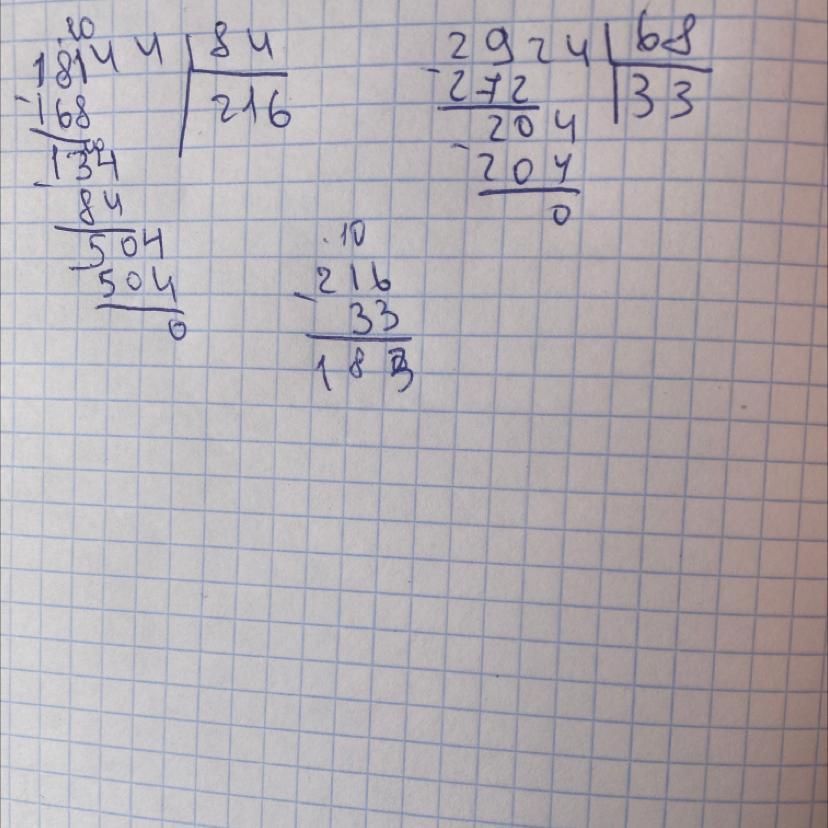 .10
18144 | 84
- 168 | 216
134
- 84
504
- 504
0
2924 | 68
- 272 | 33
204
- 204
0
.10
- 216
33
183